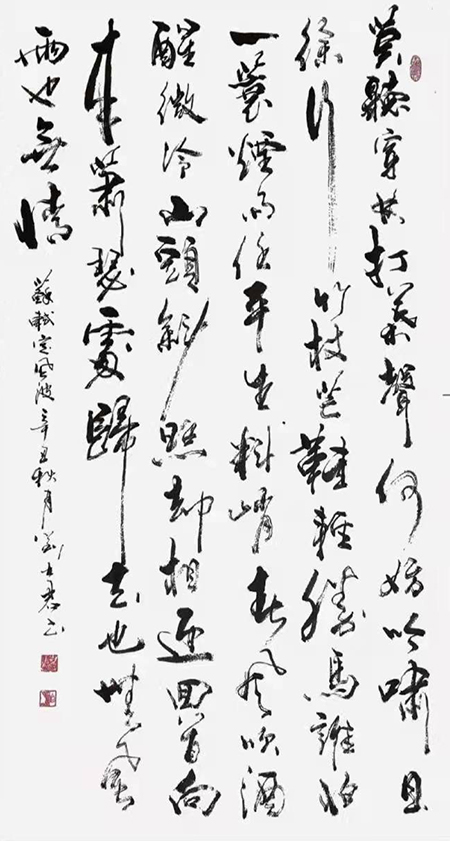 莫聽穿林打葉聲何妨吟嘯且
徐行竹杖芒鞋輕勝馬誰怕
一蓑煙雨任平生料峭春風吹酒
醒微冷山頭斜照却相迎回首向
来蕭瑟處歸去也無風
雨也無晴
蘇軾定風波辛丑秋月劉士君书